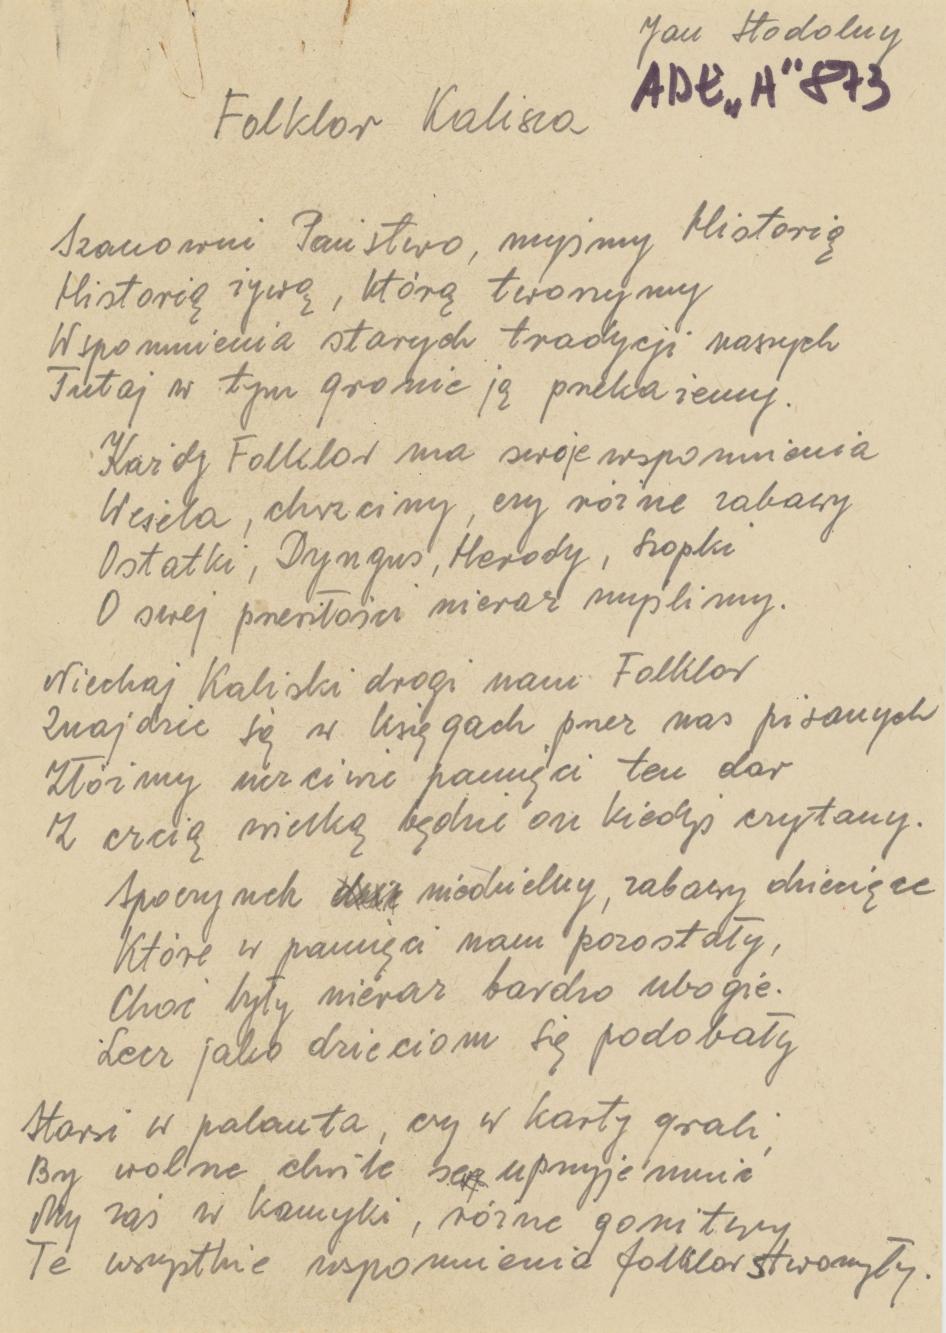 Jan Stodolny
ADŁ„H" 873
Folklor Kalisza
Szanowni Państwo, myśmy Historią
Historią żywą, którą tworzymy
Wspomnienia starych tradycji naszych
Tutaj w tym gronie ją przekażemy.
Każdy Folklor ma swoje wspomnienia
Wesela, chrzciny, czy różne zabawy
Ostatki, Dyngus, Herody, Szopki
O swej przeszłości nieraz myślimy.
Niechaj Kaliski drogi nam Folklor
Znajdzie się w księgach przez nas pisanych
Złóżmy uczciwie pamięci ten dar
Z czcią wielką będzie on kiedyś czytany.
Spoczynek niedzielny, zabawy dziecięce
Które w pamięci nam pozostały,
Choć były nieraz bardzo ubogie.
Lecz jako dzieciom się podobały
Starsi w palanta, czy w karty grali,
By wolne chwile se uprzyjemnić
My zaś w kamyki, różne gonitwy
Te wszystkie wspomnienia folklor stworzyły.